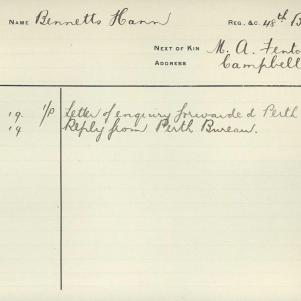 NAME Bennetts Hann REG. &C. 48th B
NEXT OF KIN M. A. Fento
ADDRESS Campbell
19. 1/P Letter of enquiry forwarded Perth
19 Reply from Perth Bureau.